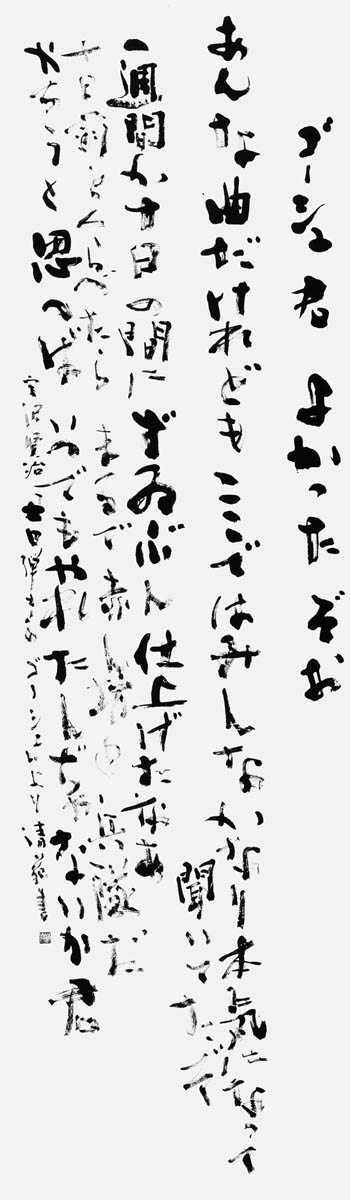 ゴーシュ君 よかったぞお
あんな曲だけれどもここではみんなかなり本気になって
聞いてたぞ
一週間か十日の間にずゐぶん仕上げたなあ
十日前とくらべたらまるで赤ん坊と兵隊だ
やらうと思へばいつでもやれたんぢゃないか君
宮沢賢治 セロ弾きのゴーシュより 清 書